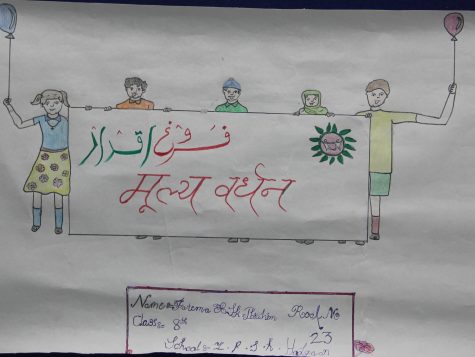 فروغ اقدار
मूल्य वर्धन
Name= Fatema Roll No
Class= 8th 23
School= Z. P. S. h.